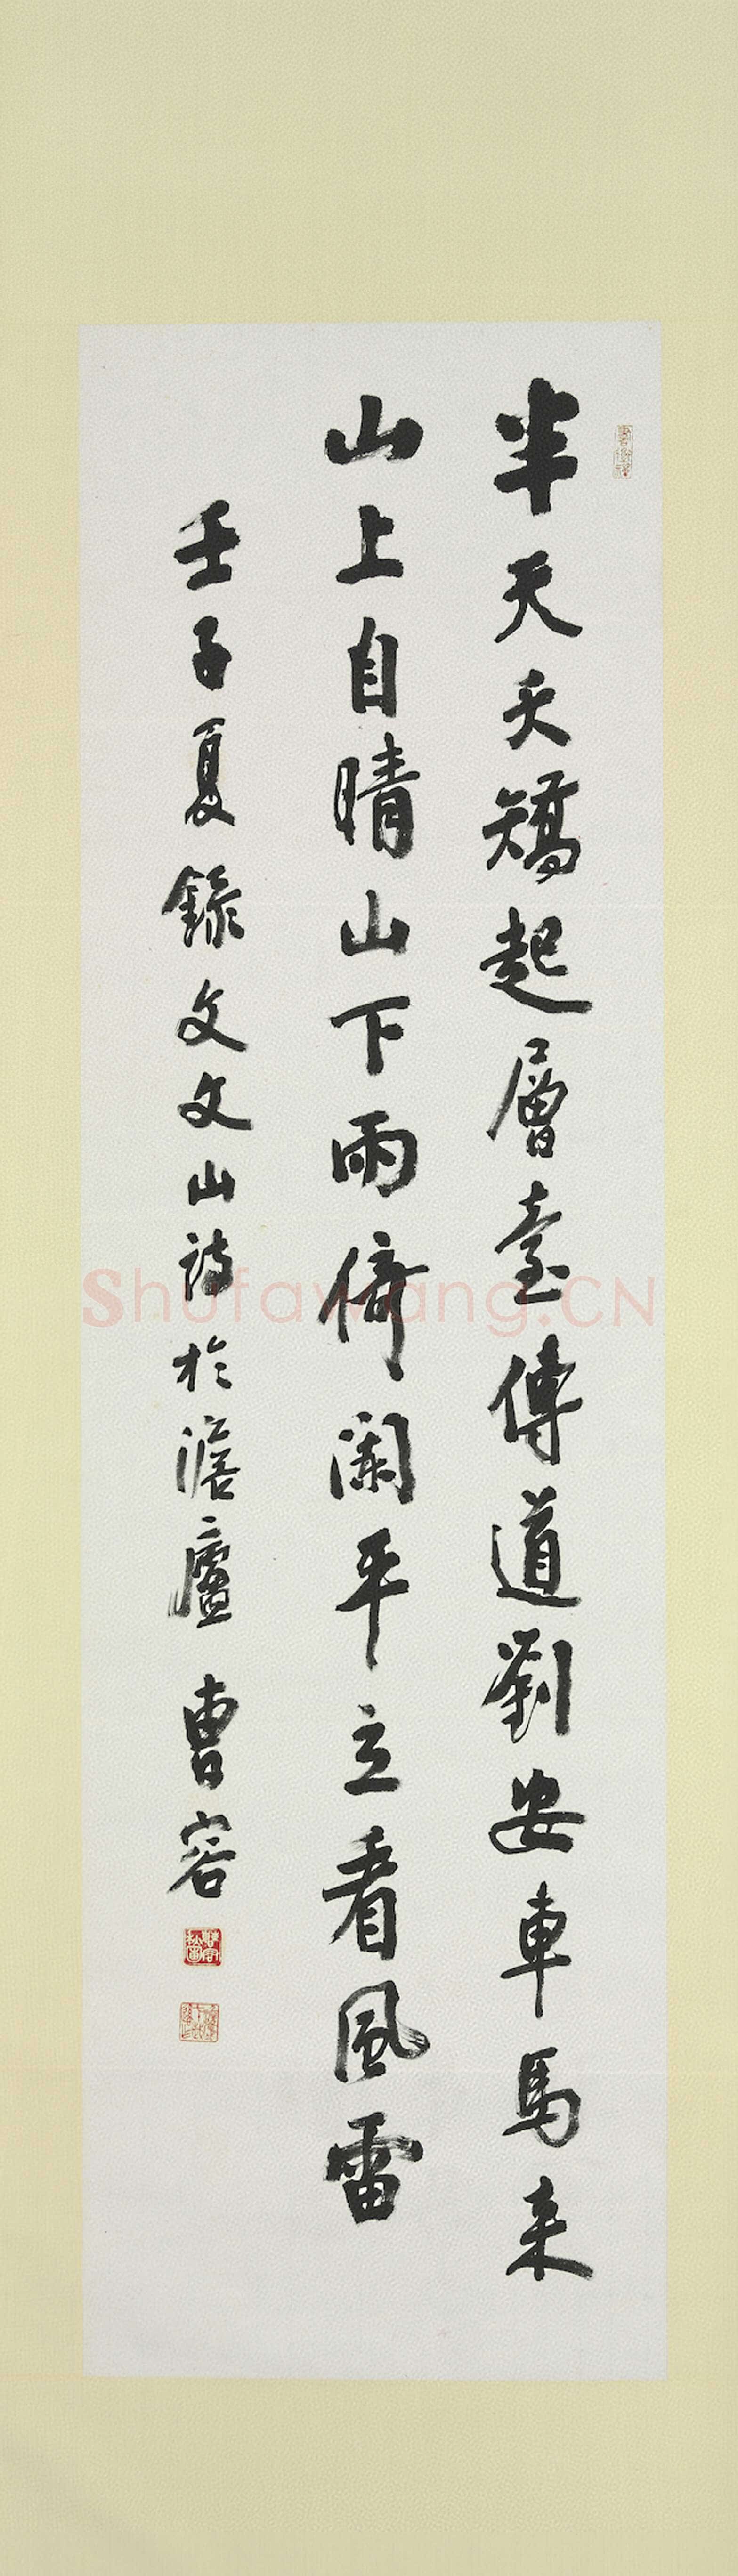 半天夭矯起層臺傳道劉安車馬來
山上自晴山下雨倚闌平立看風雷
壬子夏錄文文山詩於澹廬 曹容
Shufawang.CN